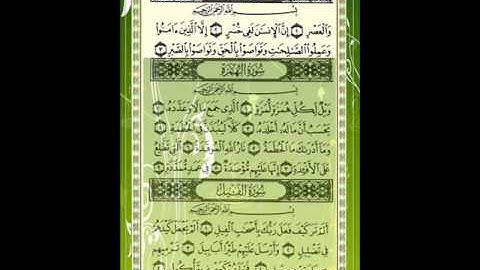 بِسْمِ اللَّهِ الرَّحْمَٰنِ الرَّحِيمِ
وَالْعَصْرِ ١ إِنَّ الْإِنسَٰنَ لَفِي خُسْرٍ ٢ إِلَّا الَّذِينَ ءَامَنُوا
وَعَمِلُوا الصَّٰلِحَٰتِ وَتَوَاصَوْا بِالْحَقِّ وَتَوَاصَوْا بِالصَّبْرِ ٣
سُورَةُ الْهُمَزَةِ
بِسْمِ اللَّهِ الرَّحْمَٰنِ الرَّحِيمِ
وَيْلٌ لِّكُلِّ هُمَزَةٍ لُّمَزَةٍ ١ الَّذِي جَمَعَ مَالًا وَعَدَّدَهُ ٢
يَحْسَبُ أَنَّ مَالَهُ أَخْلَدَهُ ٣ كَلَّا لَيُنبَذَنَّ فِي الْحُطَمَةِ ٤
وَمَا أَدْرَىٰكَ مَا الْحُطَمَةُ ٥ نَارُ اللَّهِ الْمُوقَدَةُ ٦ الَّتِي تَطَّلِعُ
عَلَى الْأَفْـِٔدَةِ ٧ إِنَّهَا عَلَيْهِم مُّؤْصَدَةٌ ٨ فِي عَمَدٍ مُّمَدَّدَةٍ ٩
سُورَةُ الْفِيلِ
بِسْمِ اللَّهِ الرَّحْمَٰنِ الرَّحِيمِ
أَلَمْ تَرَ كَيْفَ فَعَلَ رَبُّكَ بِأَصْحَٰبِ الْفِيلِ ١ أَلَمْ يَجْعَلْ كَيْدَهُمْ
فِي تَضْلِيلٍ ٢ وَأَرْسَلَ عَلَيْهِمْ طَيْرًا أَبَابِيلَ ٣ تَرْمِيهِم